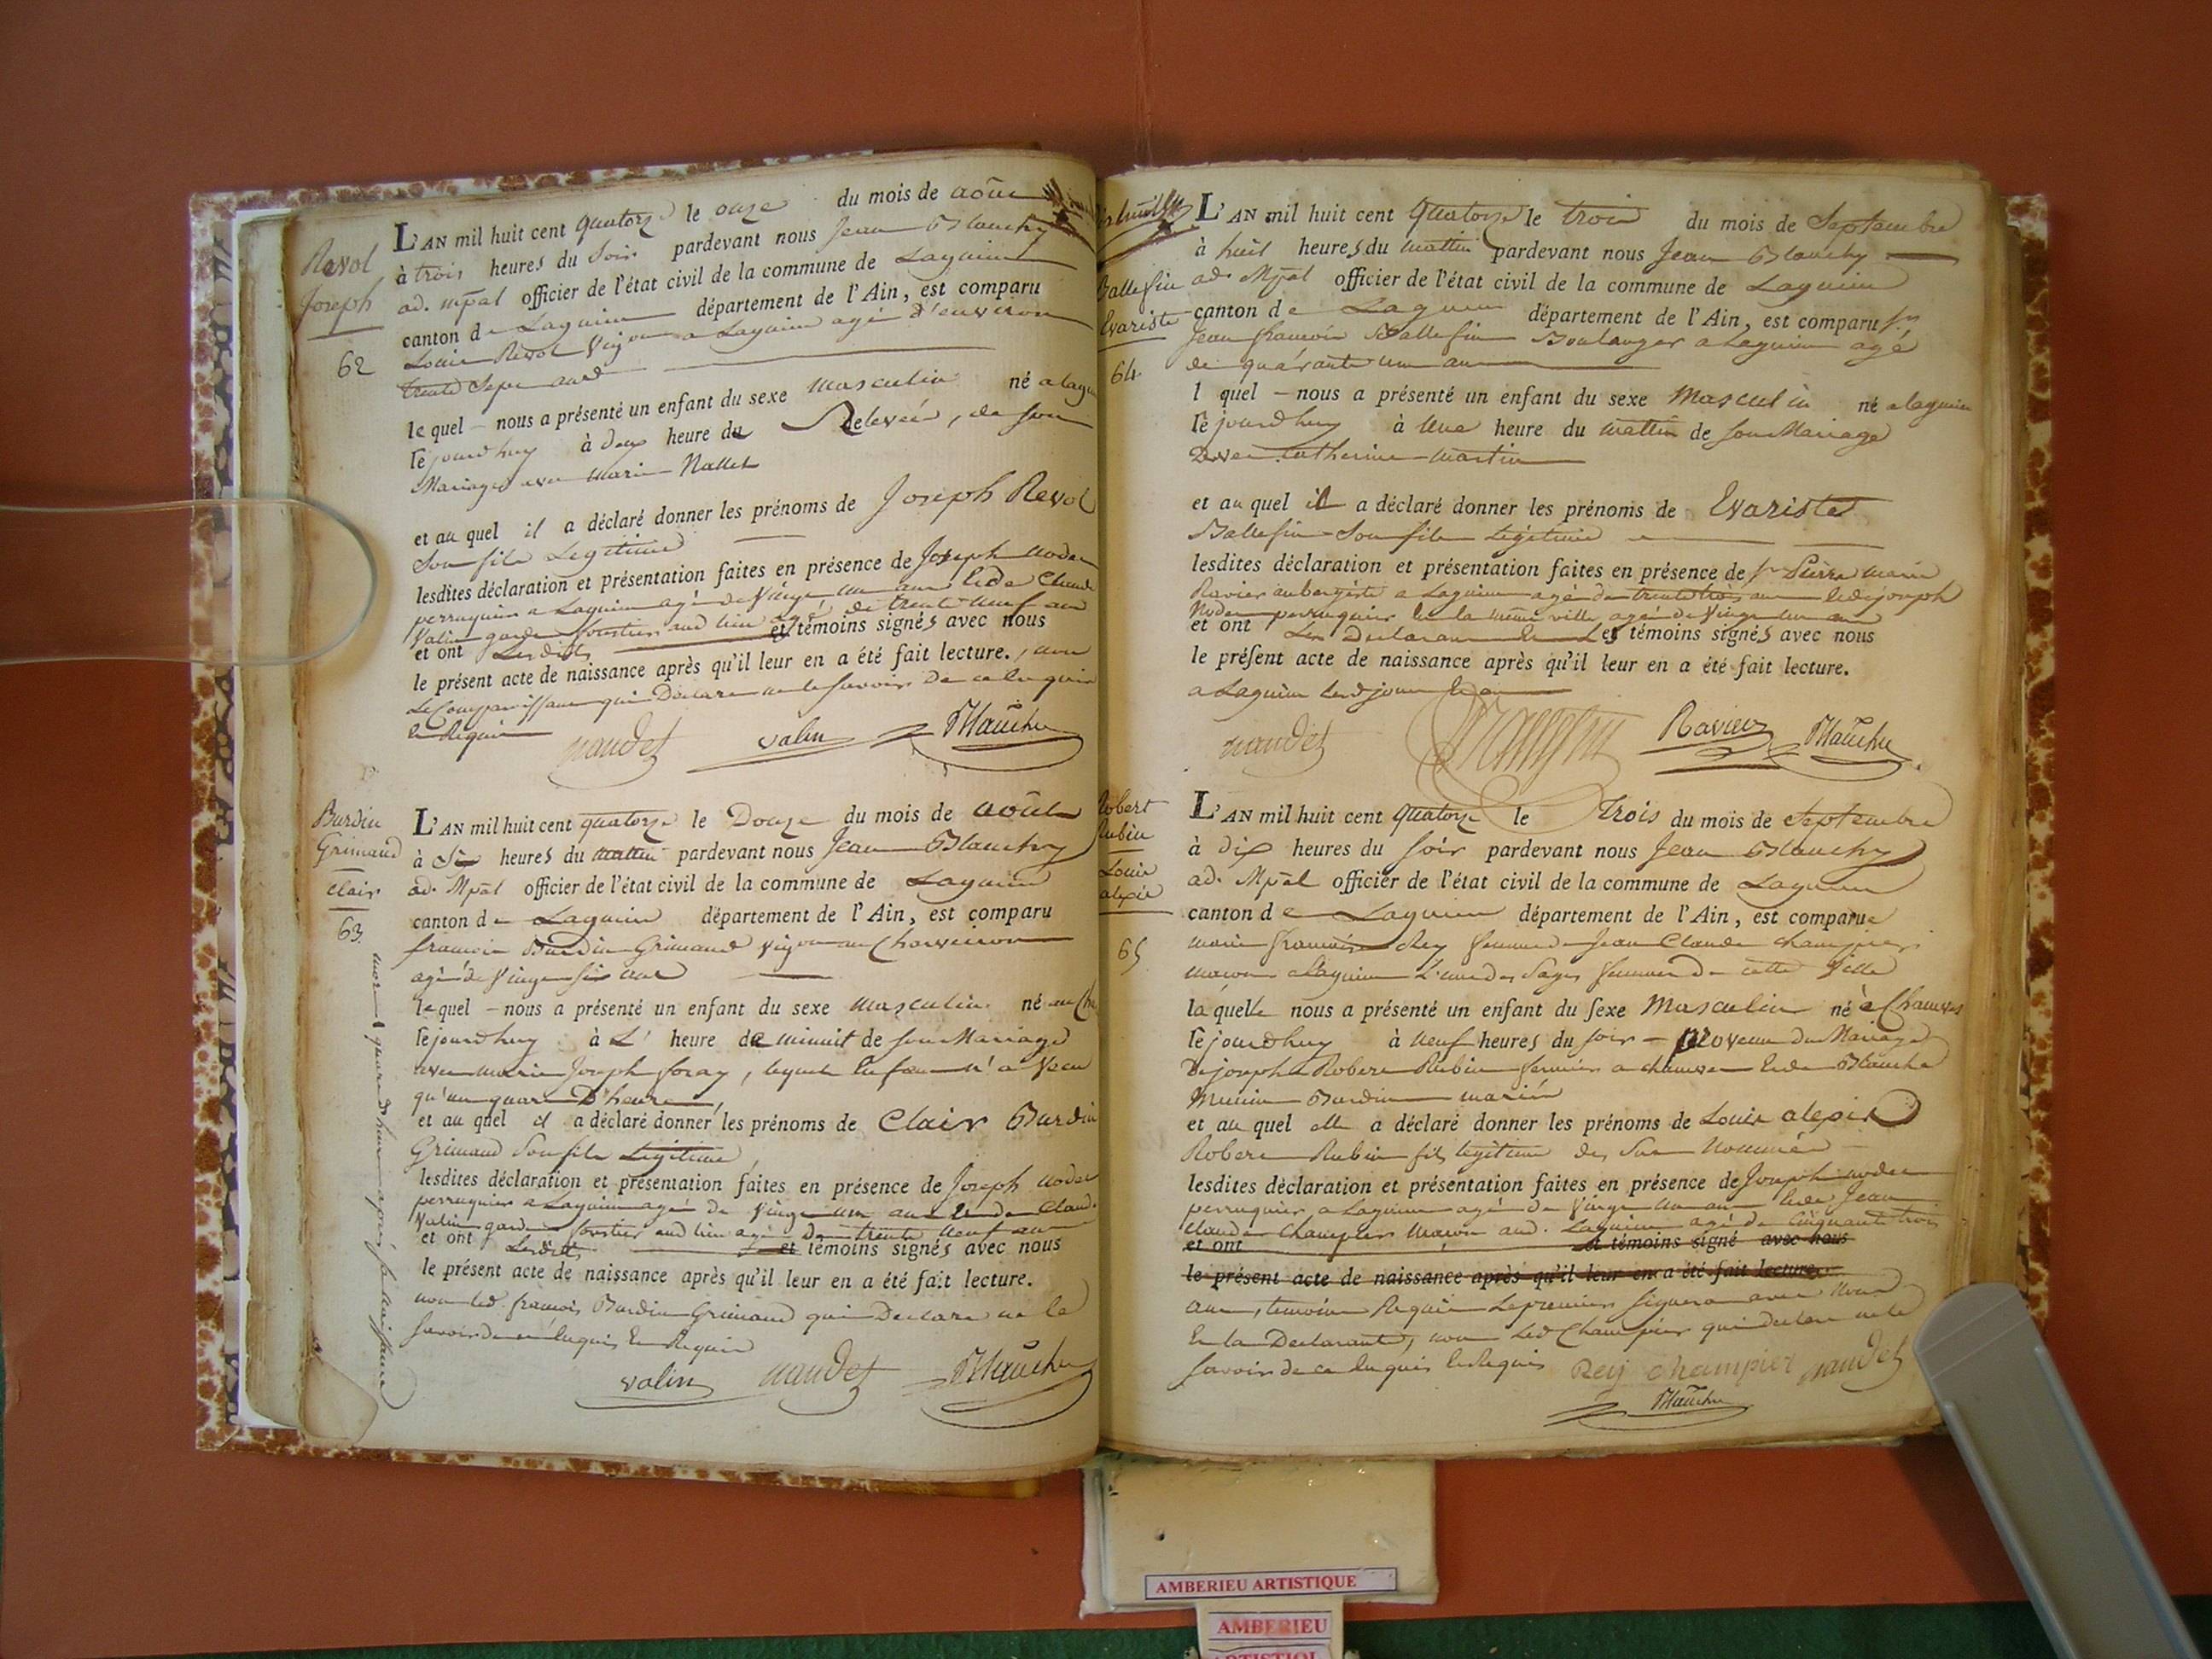 Revol
Joseph
62
L'AN mil huit cent quatorze le onze du mois de août
à trois heures du soir pardevant nous Jean Blanchy
ad. mpal officier de l'état civil de la commune de Lagnieu
canton de Lagnieu département de l'Ain, est comparu
Louis Revol vigon a Lagnieu agé d'environ
trente sept ans
lequel nous a présenté un enfant du sexe masculin né a lagn
cejourdhuy à deux heure du Relevée, de son
Mariage avec Marie Nallet
et au quel il a déclaré donner les prénoms de Joseph Revol
son fils Légitime
lesdites déclaration et présentation faites en présence de Joseph nodet
perruquier a Lagnieu agé de vingt un ans et de Claude
Valin garde forestier aud lieu agé de trente neuf ans
et ont Lesdits et témoins signés avec nous
le présent acte de naissance après qu'il leur en a été fait lecture, non
Le Comparissant qui Déclare ne le savoir de ce enquis
et Requis
naudet valin Blanchy
Burdin
Grimaud
clair
63
mort 1 quard heure après sa naissance
L'AN mil huit cent quatorze le Douze du mois de août
à Six heures du mattin pardevant nous Jean Blanchy
ad. Mpal officier de l'état civil de la commune de Lagnieu
canton de Lagnieu département de l'Ain, est comparu
francois Burdin Grimaud vigon au Charveiron
agé de vingt six ans
lequel nous a présenté un enfant du sexe masculin né au Cha
cejourdhuy à L' heure de minuit de son Mariage
avec marie Joseph foray, lequel Enfant n'a vecu
qu'un quart D'heure,
et au quel il a déclaré donner les prénoms de Clair Burdin
Grimaud Son fils Légitime
lesdites déclaration et présentation faites en présence de Joseph nodet
perruquier a Lagnieu agé de vingt un ans et de Claude
Valin garde forestier aud lieu agé De trente neuf ans
et ont Lesdits et témoins signés avec nous
le présent acte de naissance après qu'il leur en a été fait lecture.
non led. francois Burdin Grimaud qui Declare ne le
savoir de ce enquis Et Requis
valin naudet Blanchy
Ballefin
Evariste
64
L'AN mil huit cent Quatorze le trois du mois de Septembre
à huit heures du mattin pardevant nous Jean Blanchy
ad. Mpal officier de l'état civil de la commune de Lagnieu
canton de Lagnieu département de l'Ain, est comparu sr
Jean francois Ballefin Boulanger a Lagnieu agé
de quarante un ans
l quel nous a présenté un enfant du sexe Masculin né a lagnieu
cejourdhuy à Une heure du mattin de son Mariage
avec Catherine Martin
et au quel il a déclaré donner les prénoms de Evariste
Ballefin Son fils Légitime
lesdites déclaration et présentation faites en présence de sr Pierre marie
Ravier aubergiste a Lagnieu agé de trente trois ans et de joseph
Nodet perruquier de la même ville agé de vingt un ans
et ont Les Declarant et Les témoins signés avec nous
le présent acte de naissance après qu'il leur en a été fait lecture.
a Lagnieu lesd jour et an
naudet Ravier Blanchy
Robert
Rubin
Louis
alexis
65
L'AN mil huit cent Quatorze le trois du mois de septembre
à dix heures du soir pardevant nous Jean Blanchy
ad. Mpal officier de l'état civil de la commune de Lagnieu
canton de Lagnieu département de l'Ain, est comparue
marie francoise Rey femme de Jean Claude champier
macon a Lagnieu L'une des Sages femmes de cette Ville
laquelle nous a présenté un enfant du sexe Masculin né à Chauves
cejourdhuy à neuf heures du soir provenu du Mariage
De joseph Robert Rubin fermier a chauves et de Blanche
Mimin Burdin mariés
et au quel elle a déclaré donner les prénoms de Louis alexis
Robert Rubin fils legitime des Sus Nommés
lesdites déclaration et présentation faites en présence de Joseph nodet
perruquier a Lagnieu agé de vingt un ans et de Jean
Claude Champier macon aud. Lagnieu agé de Cinquante trois
et ont et témoins signé avec nous
le présent acte de naissance après qu'il leur en a été fait lecture.
ans, temoins Requis Le premier signera avec nous
Et la Declarante, non Led Champier qui declare ne le
savoir de ce enquis et Requis Rey champier naudet
Blanchy
AMBERIEU ARTISTIQUE
AMBERIEU
ARTISTIQU